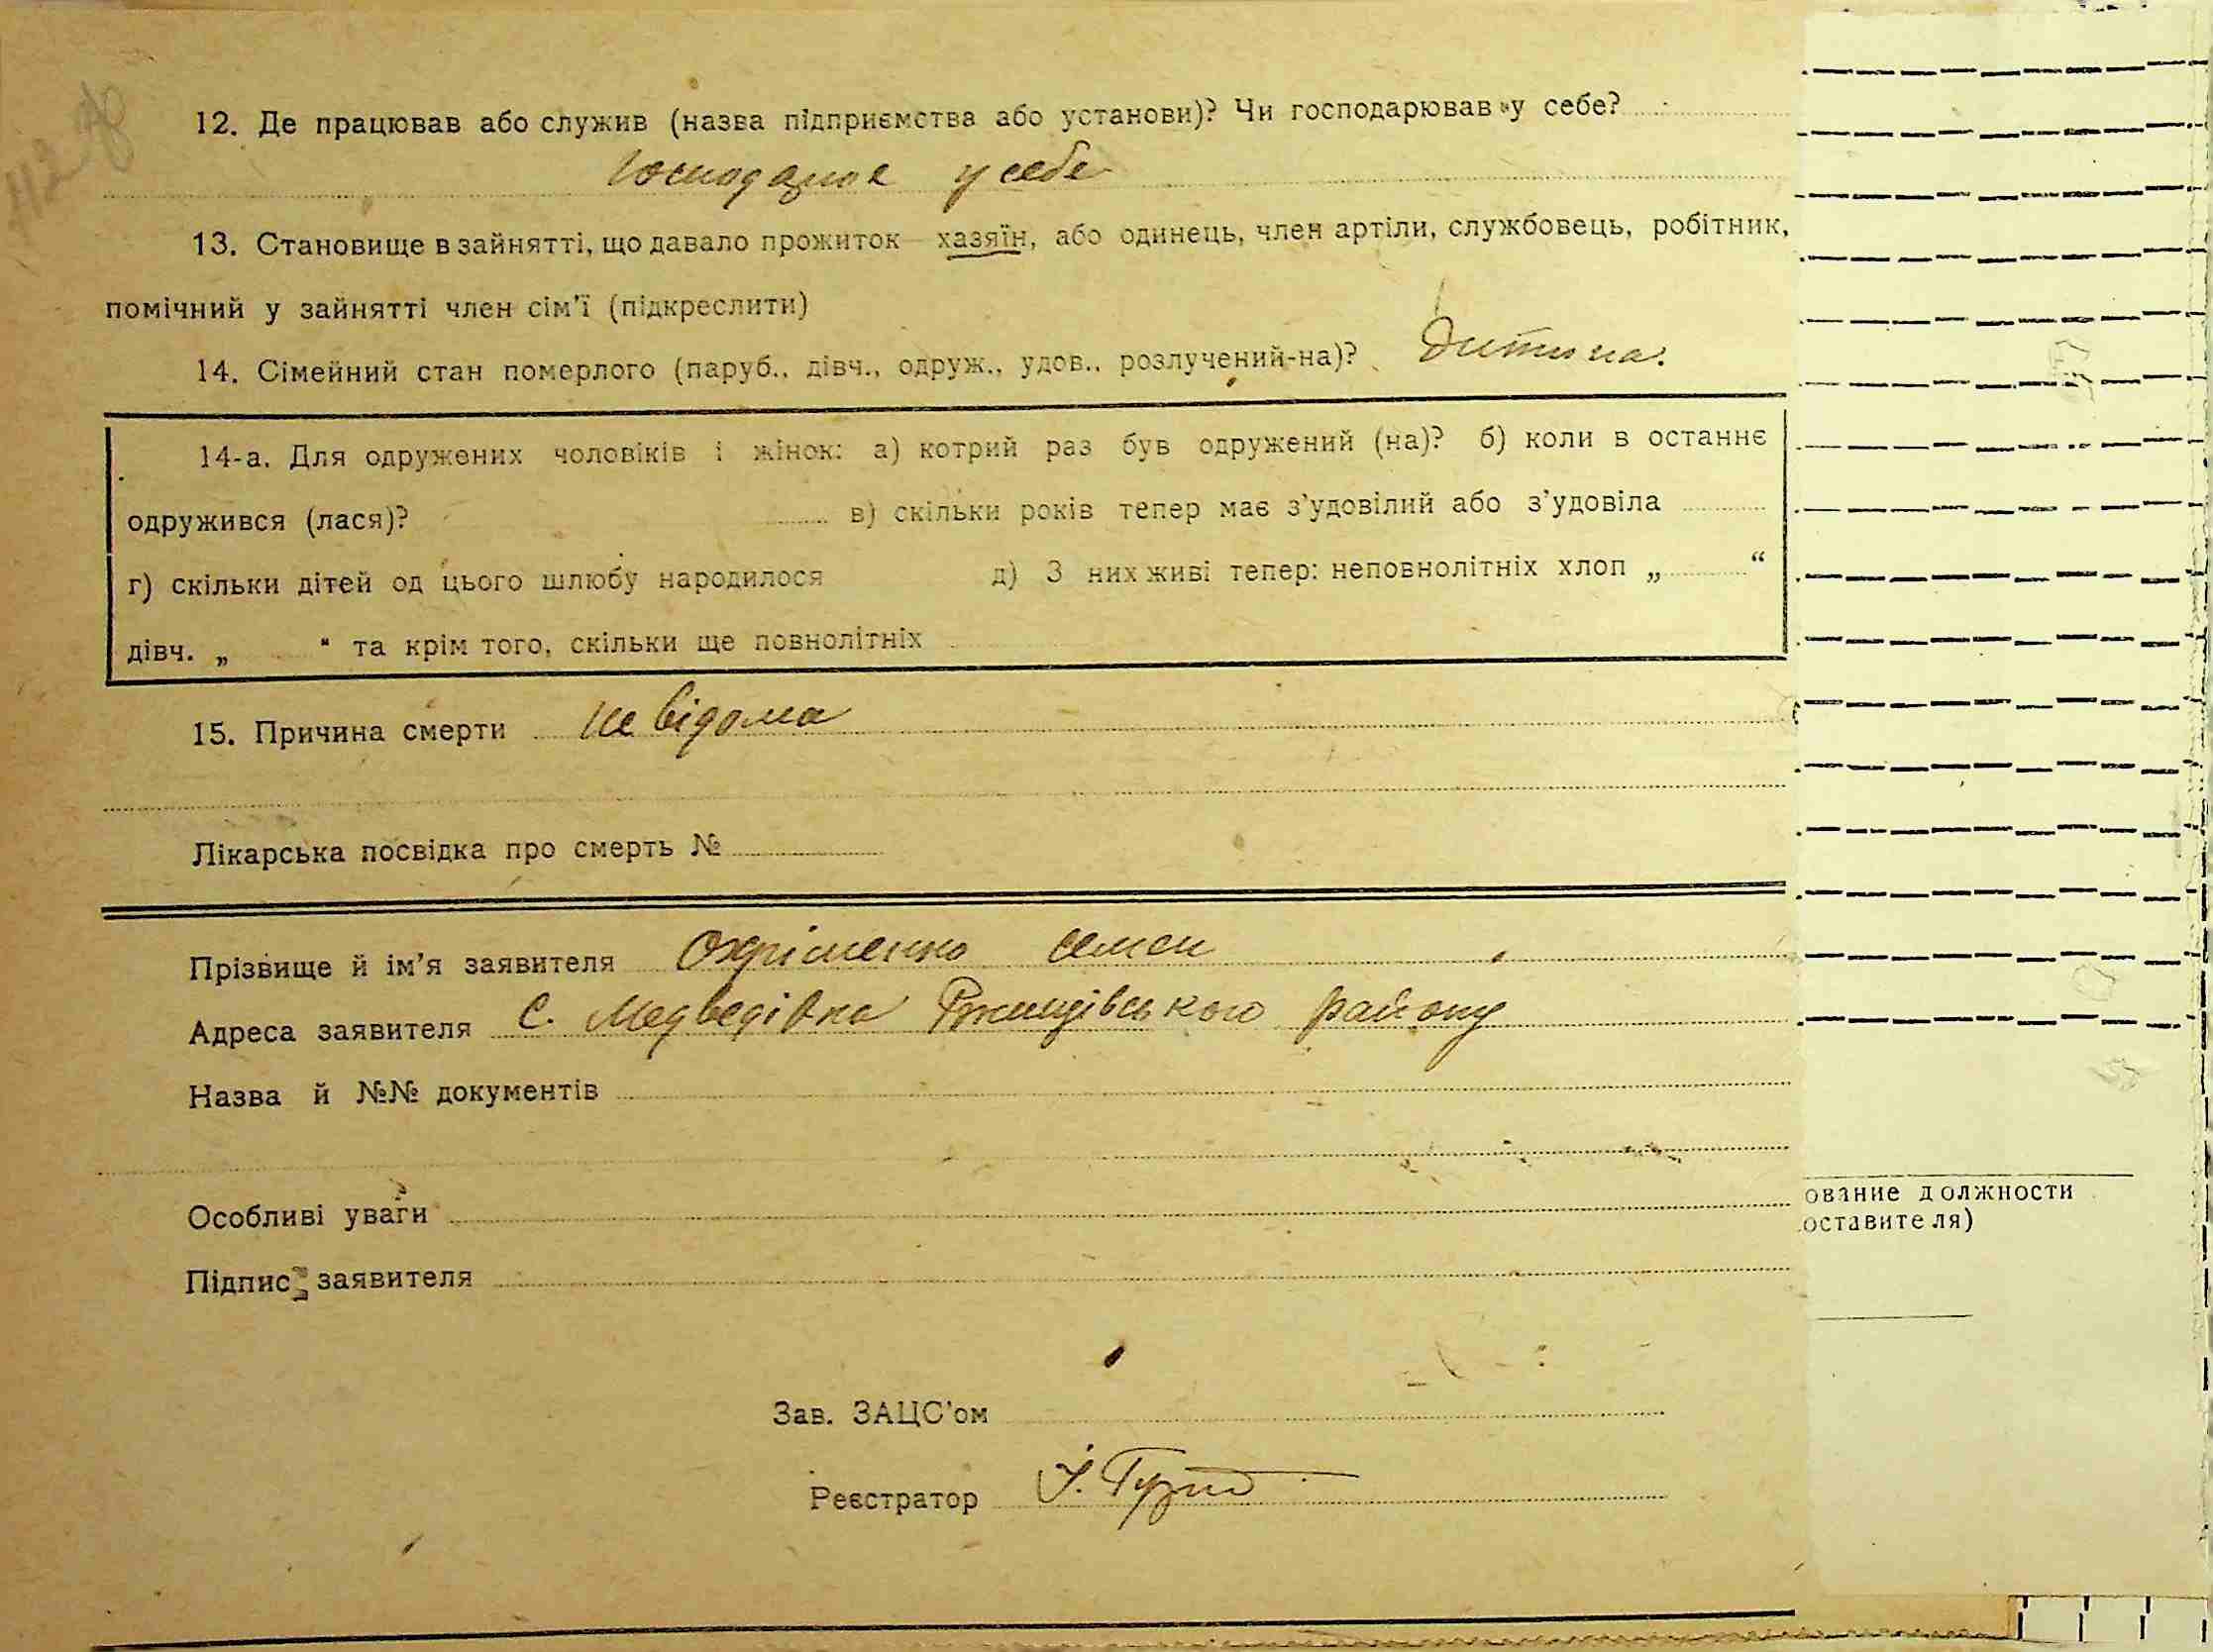 12. Де працював або служив (назва підприємства або установи)? Чи господарював у себе?
у себе
13. Становище в зайнятті, що давало прожиток хазяїн, або одинець, член артіли, службовець, робітник,
помічний у зайнятті член сім'ї (підкреслити)
14. Сімейний стан померлого (паруб., дівч., одруж., удов., розлучений-на)? Дитина.
14-а. Для одружених чоловіків і жінок: а) котрий раз був одружений (на)? б) коли в останнє
одружився (лася)? в) скільки років тепер має з'удовілий або з'удовіла
г) скільки дітей од цього шлюбу народилося д) З них живі тепер: неповнолітніх хлоп „ “
дівч. „ “ та крім того, скільки ще повнолітніх
15. Причина смерти не відома
Лікарська посвідка про смерть №
Прізвище й ім'я заявителя Охріменко Семен
Адреса заявителя С. Медведівка Ржищівського району
Назва й №№ документів
Особливі уваги
Підпис заявителя
Зав. ЗАЦС'ом
Реєстратор
ование должности
оставителя)